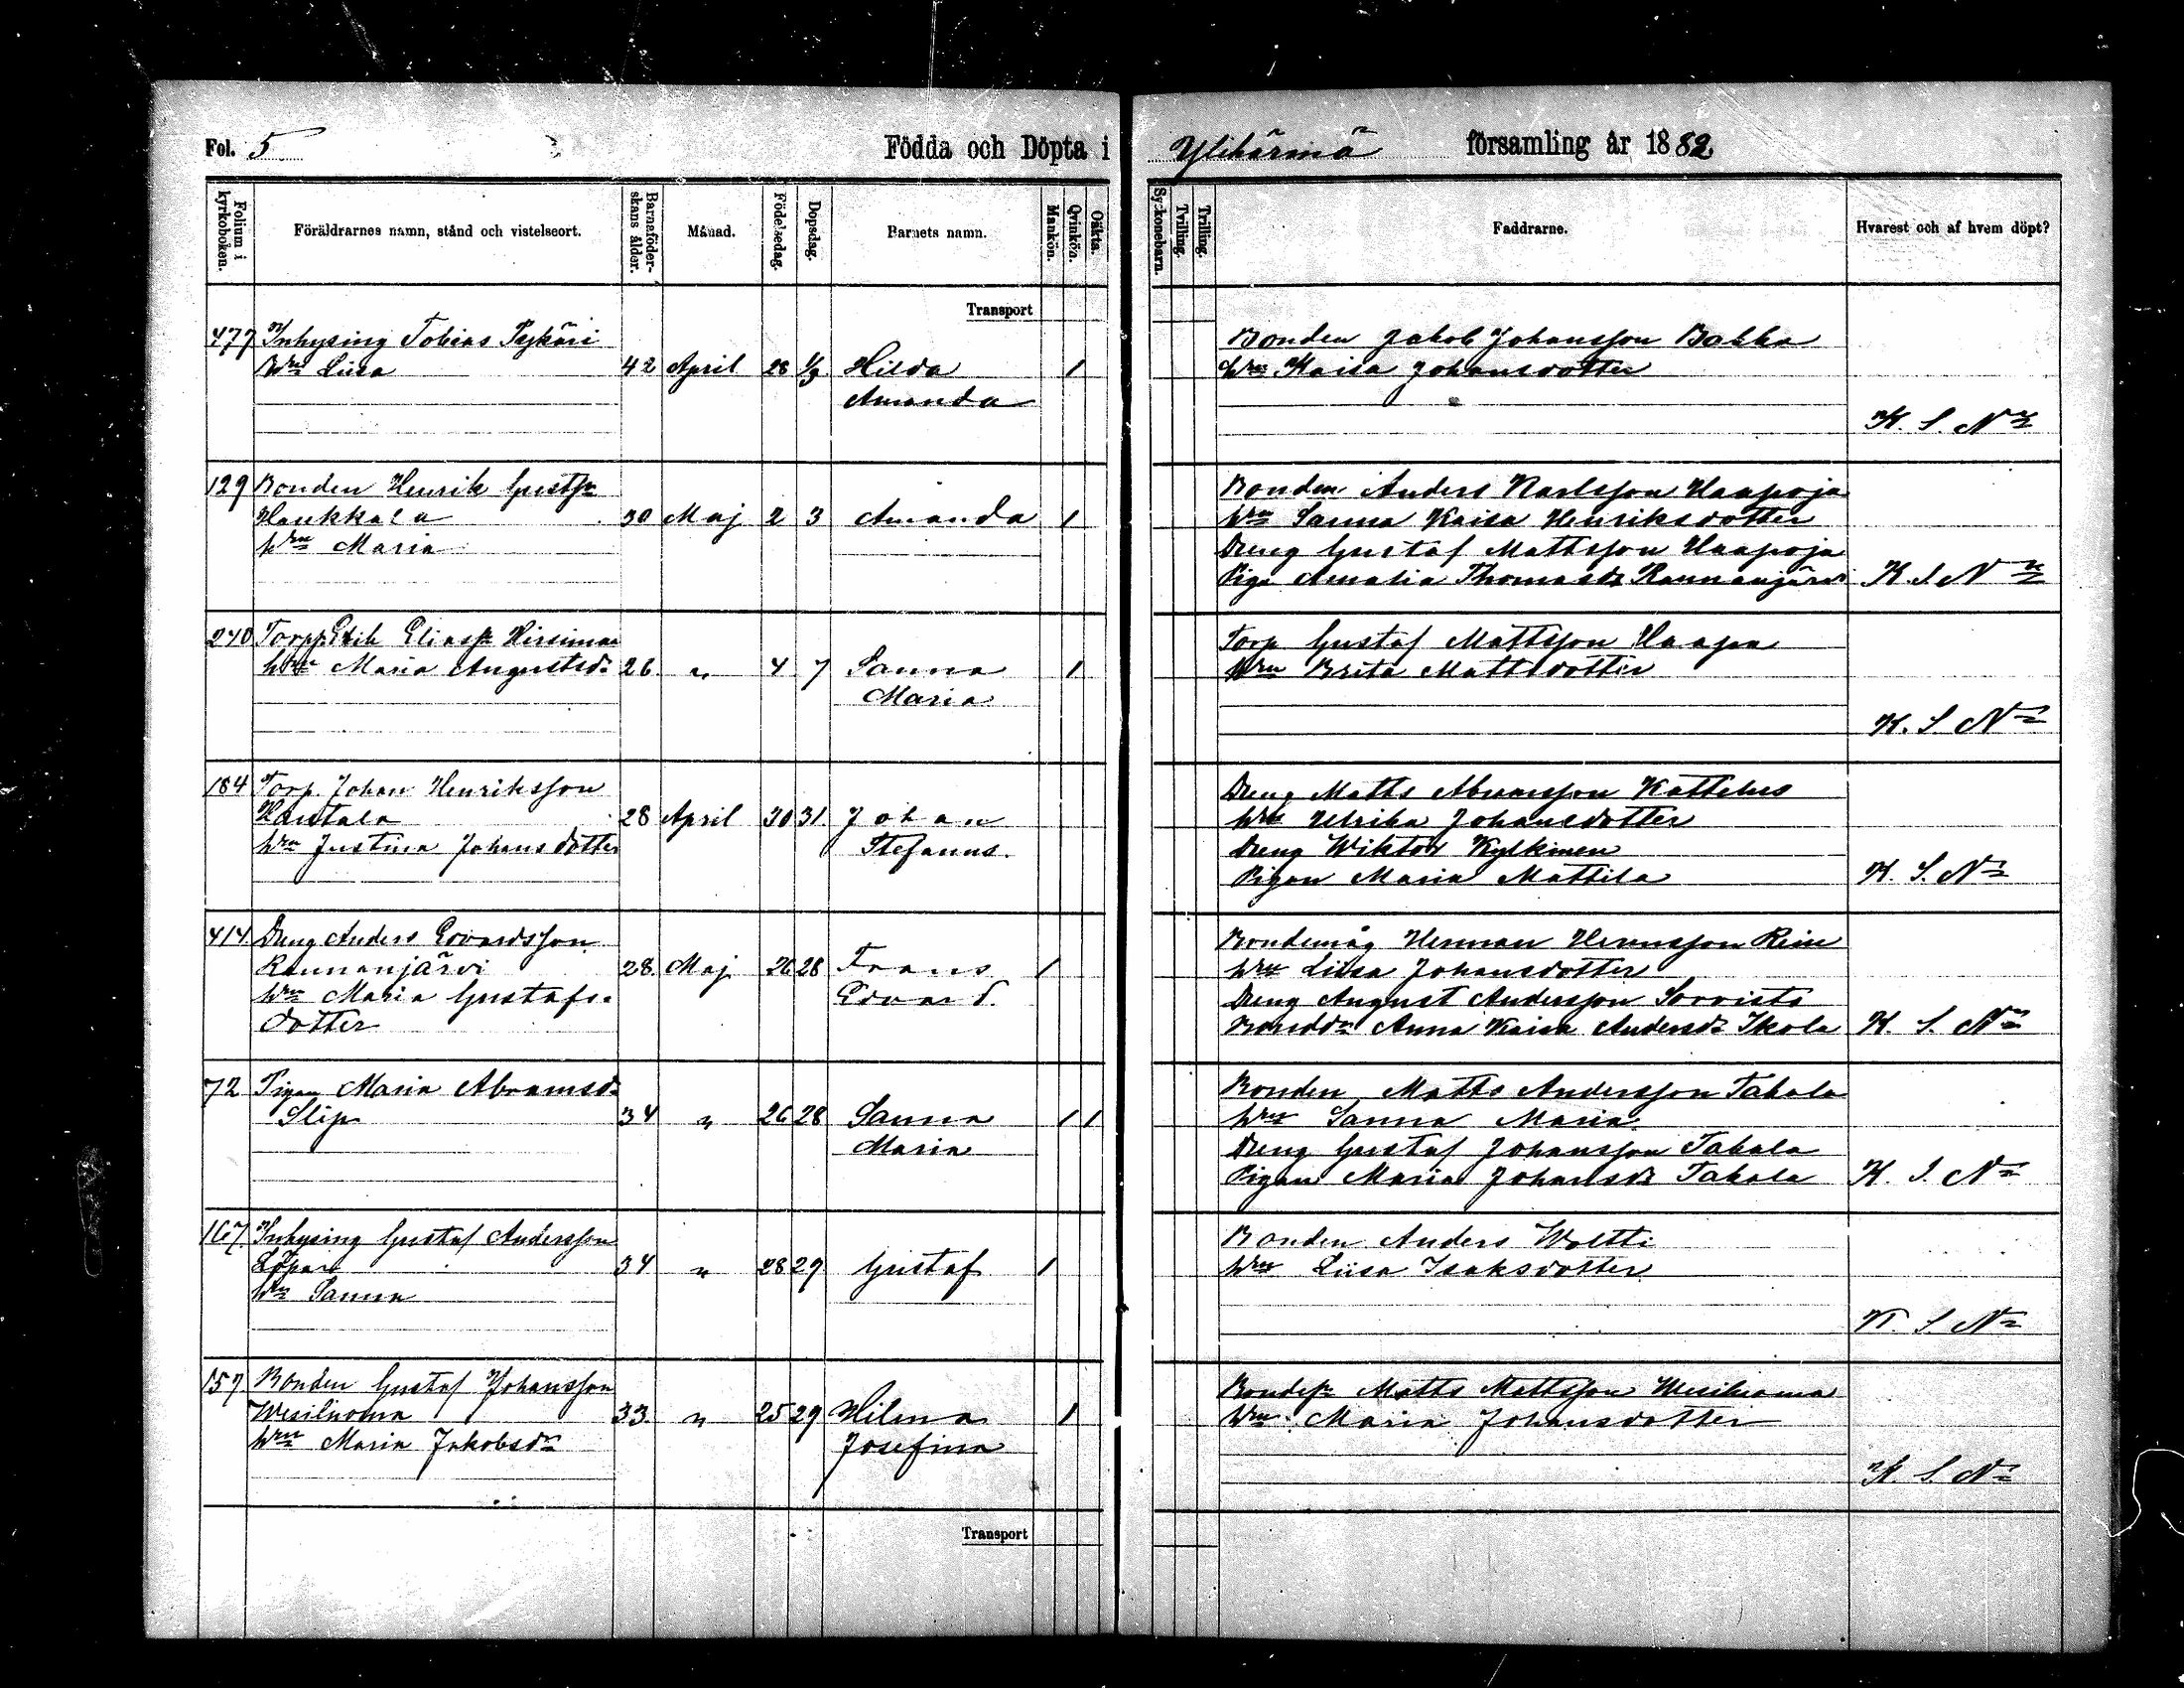 Fol. 5 Födda och Döpta i Ylihärmä församling år 1882
Folium i kyrkoboken.
Föräldrarnes namn, stånd och vistelseort.
Barnaföderskans ålder.
Månad.
Födelsedag.
Dopsdag.
Barnets namn.
Mankön.
Qvinkön.
Oäkta.
Syskonebarn.
Tvilling.
Trilling.
Faddrarne.
Hvarest och af hvem döpt?
Transport
477 Inhysing Tobias Pykäri Bonden Jakob Johansson
hru Liisa 42 April 28 1/3 Hilda 1 hru Kaisa Johansdotter
Amanda
K. S. Nn
129 Bonden Henrik Gustfsn Bonden Anders Karlsson Haapoja
Haukkala 30 Maj 2 3 Amanda 1 hru Sanna Kaisa Henriksdotter
hru Maria Dreng Gustaf Mattsson Haapoja
Piga Amalia Thomasdr Rannanjärvi K. S. Nn
240 Torpp. Erik Eliassn Torp Gustaf Mattsson Haapa
hru Maria Augustsdr 26 " 4 7 Sanna 1 hru Brita Mattsdotter
Maria
K. S. Nn
184 Torp. Johan Henriksson Dreng Matts Abramsson Kattelus
Hautala 28 April 30 31. Johan hru Ulrika Johansdotter
hru Justina Johansdotter Stefanus. Dreng Wiktor Kylkinen
Pigan Maria Mattila K. S. Nn
414. Dreng Anders Edvardsson Bondemåg Herman Hermsson
Rannanjärvi 28. Maj 26 28 Frans 1 hru Liisa Johansdotter
hru Maria Gustafs- Edvard. Dreng August Andersson Sorvisto
dotter Bondedr Anna Kaisa Andersdr Ikola K. S. Nn
72 Pigan Maria Abramsdr Bonden Matts Andersson Takala
Slip 34 " 26 28 Sanna 1 1 hru Sanna Maria
Maria Dreng Gustaf Johansson Takala
Pigan Maria Johansdr Takala K. S. Nn
167. Inhysing Gustaf Andersson Bonden Anders Woltti
Löpare 34 " 28 29 Gustaf 1 hru Liisa Isaksdotter
hru Sanna
K. S. Nn
157 Bonden Gustaf Johansson Bondesn Matts Mattsson Wesiluoma
Wesiluoma 33 " 25 29 Hilma 1 hru Maria Johansdotter
hru Maria Jakobsdr Josefina
K. S. Nn
Transport